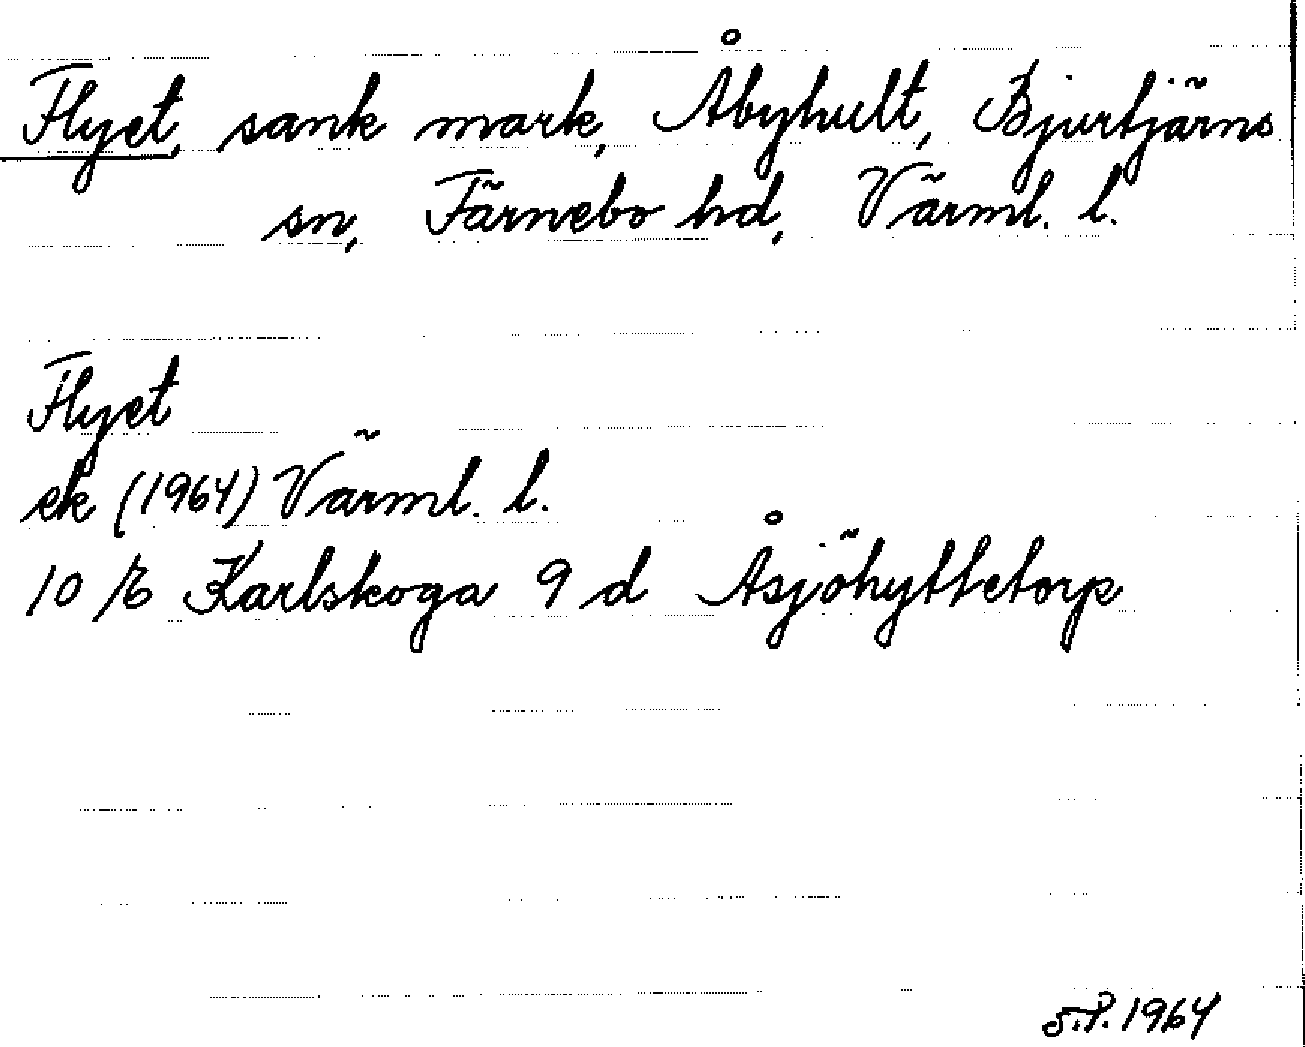 Flyet, sank mark, Åbyhult, Bjurtjärns
sn, Färnebo hd, Värml. l.
Flyet
ek (1964) Värml. l.
10 E Karlskoga 9 d Åsjöhyttetorp
S.P. 1964